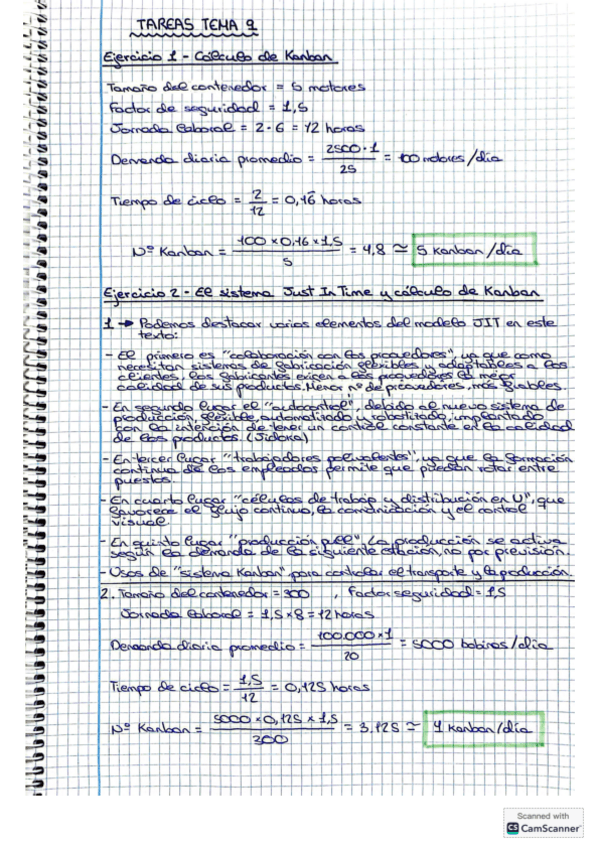 TAREAS TEMA 9
Ejercicio 1 - Cálculo de Kanban
Tamaño del contenedor = 5 motores
Factor de seguridad = 1,5
Jornada laboral = 2 · 6 = 12 horas
Demanda diaria promedio = 2500 · 1 / 25 = 100 motores/día
Tiempo de ciclo = 2 / 12 = 0,16 horas
Nº Kanban = 100 x 0,16 x 1,5 / 5 = 4,8 ≃ 5 kanban/día
Ejercicio 2 - El sistema Just In Time y cálculo de Kanban
1 → Podemos destacar varios elementos del modelo JIT en este
texto:
- El primero es "colaboración con los proveedores", ya que como
necesitan sistemas de fabricación flexibles y adaptables a los
clientes, los fabricantes exigen a los proveedores la mejor
calidad de sus productos. Menor nº de proveedores, más fiables.
- En segundo lugar el "autocontrol", debido al nuevo sistema de
producción flexible, automatizado y robotizado, implantado
con la intención de tener un control constante en la calidad
de los productos. (Jidoka)
- En tercer lugar "trabajadores polivalentes", ya que la formación
continua de los empleados permite que puedan rotar entre
puestos.
- En cuarto lugar "células de trabajo y distribución en U", que
favorece el flujo continuo, la comunicación y el control
visual.
- En quinto lugar "producción pull". La producción se activa
según la demanda de la siguiente estación, no por previsión.
- Usos de "sistema Kanban" para controlar el transporte y la producción.
2. Tamaño del contenedor = 300 , Factor seguridad = 1,5
Jornada laboral = 1,5 x 8 = 12 horas
Demanda diaria promedio = 100.000 x 1 / 20 = 5000 bobinas/día
Tiempo de ciclo = 1,5 / 12 = 0,125 horas
Nº Kanban = 5000 x 0,125 x 1,5 / 300 = 3.125 ≃ 4 kanban/día
Scanned with
CS CamScanner